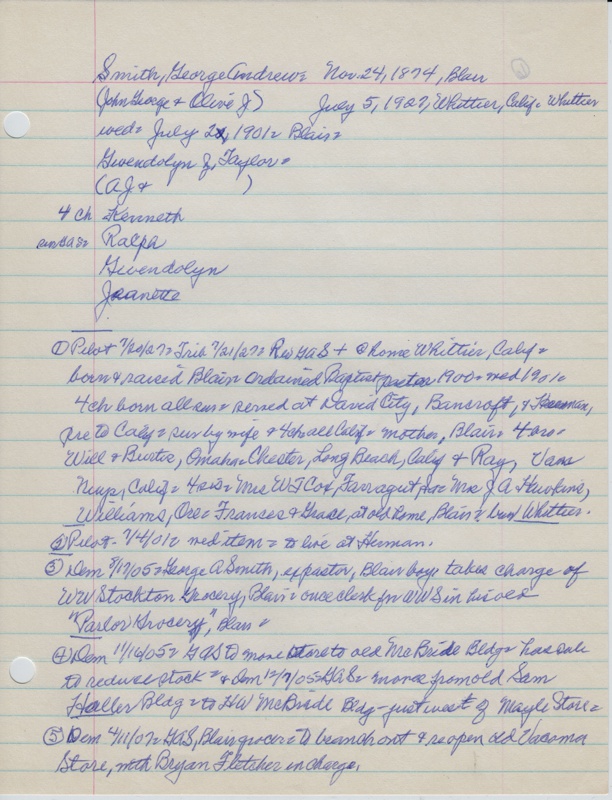 Smith, George Andrew= Nov. 24, 1874, Blair
(John George & Olive J) July 5, 1927, Whittier, Calif= Whittier
wed= July 2, 1901= Blair=
Gwendolyn J. Taylor=
(A J & )
4 ch Kenneth
sur GAS= Ralph
Gwendolyn
Jeanette
① Pilot 7/20/27= Trib 7/21/27= Rev GAS + @ home Whittier, Calif=
born & raised Blair= ordained Baptist pastor 1900= wed 1901=
4 ch born all sur= served at David City, Bancroft, &
pre to Calif= sur by wife & 4 ch all Calif= mother, Blair= 4 bro=
Will & Burtis, Omaha= Chester, Long Beach, Calif & Ray, Van
Nuys, Calif= 4 sis= Mrs W T Cox, Farragut, Mrs J A Hawkins,
Williams, Ore= Frances & Grace, at old home, Blair= bur Whittier.
② Pilot- 7/4/01= wed item= to live at Herman.
③ Dem 8/17/05= George A Smith, expastor, Blair boy= takes charge of
WW Stockton Grocery, Blair= once clerk for WWS in his old
"Parlor Grocery", Blair=
④ Dem 11/16/05= GAS to move store to old McBride Bldg= has sale
to reduce stock= & Dem 12/7/05= GAS= moves from old Sam
Haller Bldg= to HW McBride Bldg- just west of Mayle Store=
⑤ Dem 4/11/07= GAS, Blair grocer= to branch out & reopen old Vacoma
Store, with Bryan Fletcher in charge.